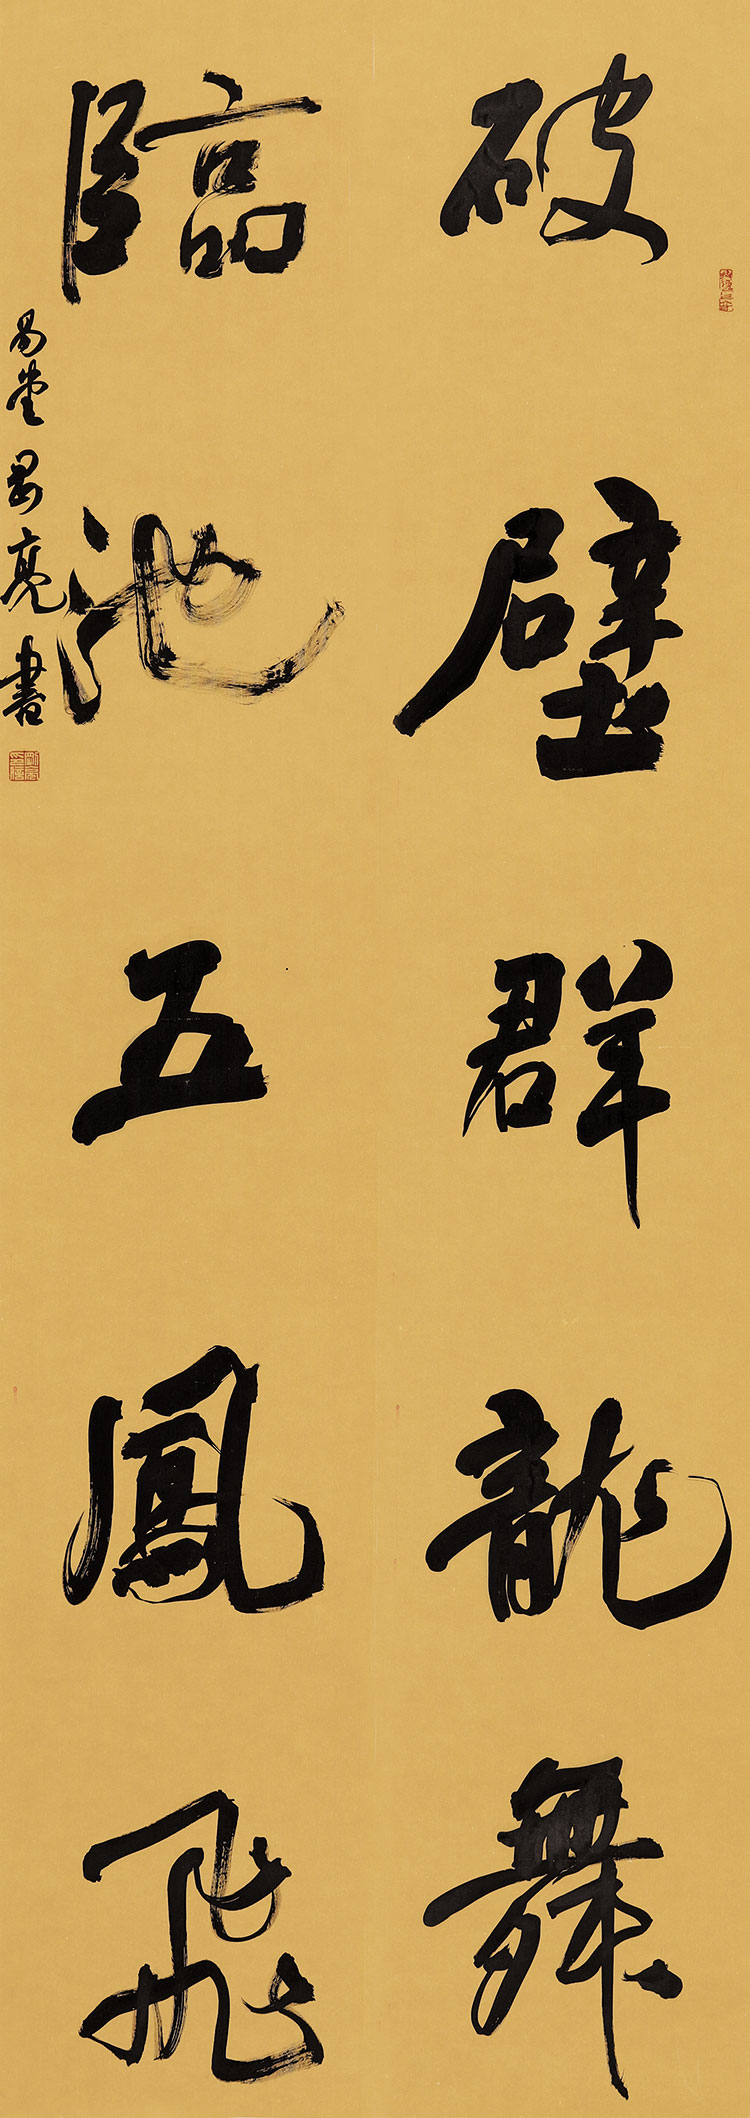 破壁群龍舞
臨池五鳳飛
易堂 亮書